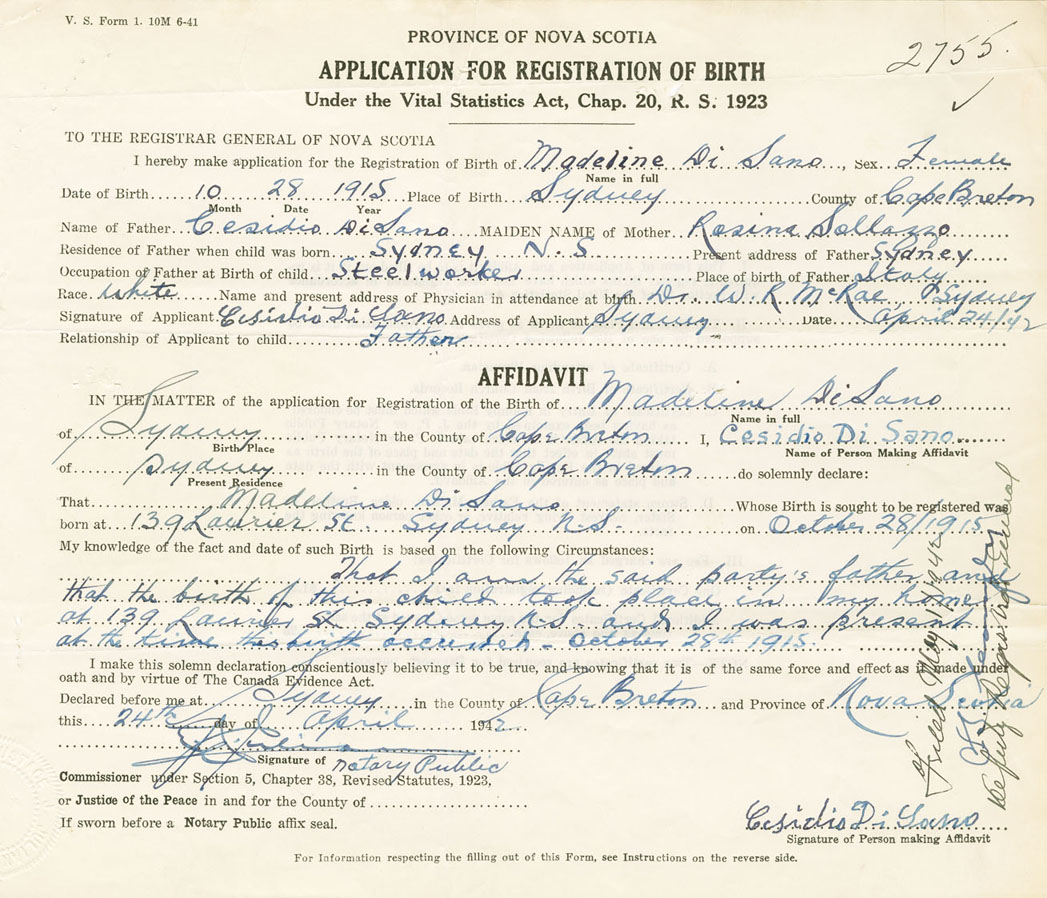 V. S. Form 1. 10M 6-41
2755.
PROVINCE OF NOVA SCOTIA
APPLICATION FOR REGISTRATION OF BIRTH
Under the Vital Statistics Act, Chap. 20, R. S. 1923
TO THE REGISTRAR GENERAL OF NOVA SCOTIA
I hereby make application for the Registration of Birth of Madeline Di Sano, Sex. Female
Name in full
Date of Birth 10 28 1915 Place of Birth Sydney County of Cape Breton
Month Date Year
Name of Father Cesidio DiSano MAIDEN NAME of Mother Rosina Sollazzo
Residence of Father when child was born Sydney N. S. Present address of Father Sydney
Occupation of Father at Birth of child Steelworker Place of birth of Father Italy
Race. White Name and present address of Physician in attendance at birth Dr. W. R. McRae Sydney
Signature of Applicant Cesidio Di Sano Address of Applicant Sydney Date April 24/42
Relationship of Applicant to child Father
AFFIDAVIT
IN THE MATTER of the application for Registration of the Birth of Madeline DiSano
Name in full
of Sydney in the County of Cape Breton I, Cesidio Di Sano
Birth Place Name of Person Making Affidavit
of Sydney in the County of Cape Breton do solemnly declare:
Present Residence
That Madeline Di Sano Whose Birth is sought to be registered was
born at 139 Laurier St. Sydney N.S. on October 28/1915
My knowledge of the fact and date of such Birth is based on the following Circumstances:
That I am the said party's father and
that the birth of this child took place in my home
at 139 Laurier St Sydney N.S. and I was present
at the time the birth occurred - October 28th 1915.
I make this solemn declaration conscientiously believing it to be true, and knowing that it is of the same force and effect as if made under
oath and by virtue of The Canada Evidence Act.
Declared before me at Sydney in the County of Cape Breton and Province of Nova Scotia
this 24th day of April 1942
Signature of Notary Public
Commissioner under Section 5, Chapter 38, Revised Statutes, 1923,
or Justice of the Peace in and for the County of
If sworn before a Notary Public affix seal.
Cesidio Di Sano
Signature of Person making Affidavit
For Information respecting the filling out of this Form, see Instructions on the reverse side.
Filed May 1/1942
Deputy Registrar General